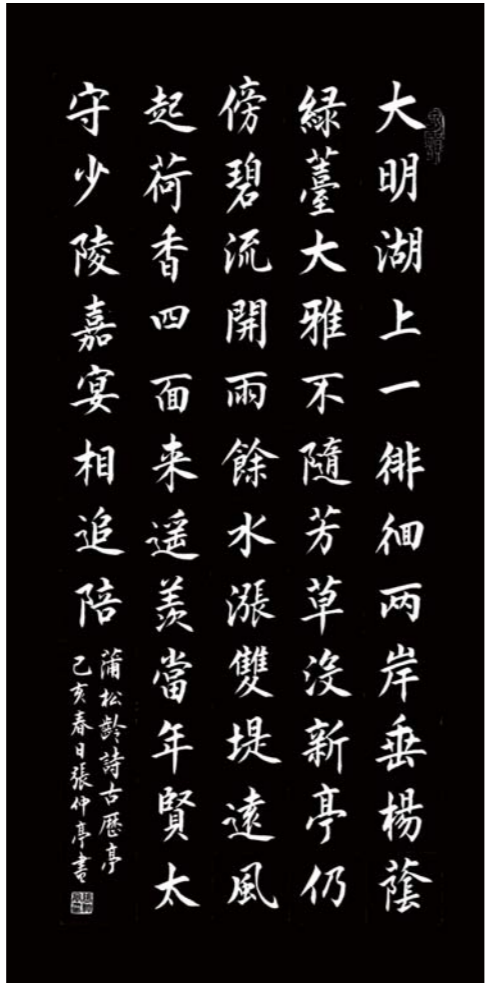 大明湖上一徘徊两岸垂楊蔭
緑薹大雅不隨芳草没新亭仍
傍碧流開雨餘水漲雙堤遠風
起荷香四面来遥羨當年賢太
守少陵嘉宴相追陪
蒲松龄詩古歷亭
己亥春日張仲亭書